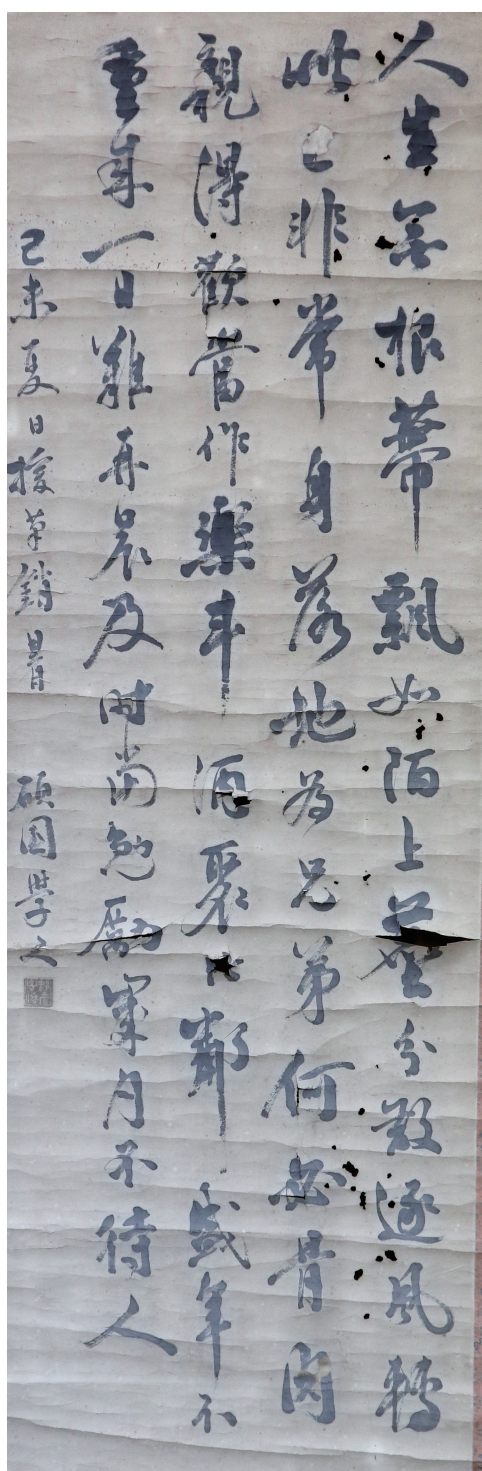 人生無根蔕飄如陌上塵分散逐風轉
此已非常身落地為兄弟何必骨肉
親得歡當作樂斗酒聚比鄰盛年不
重來一日難再晨及時當勉勵歲月不待人
己未夏日援筆銷暑 碩園學